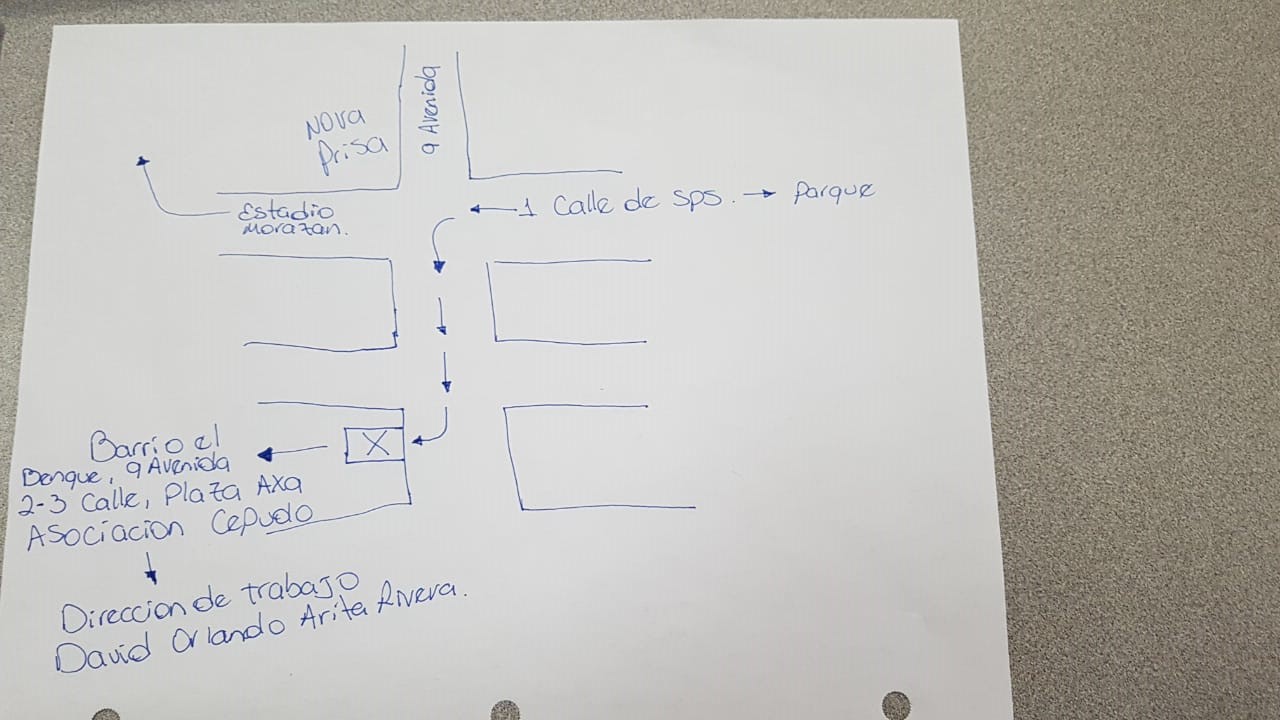 9 Avenida
Nova
Prisa
Estadio
Morazan.
1 Calle de SPS. → Parque
X
Barrio el
Benque, 9 Avenida
2-3 Calle, Plaza AXA
Asociacion Cepudo
Direccion de trabajo
David Orlando Arita Rivera.